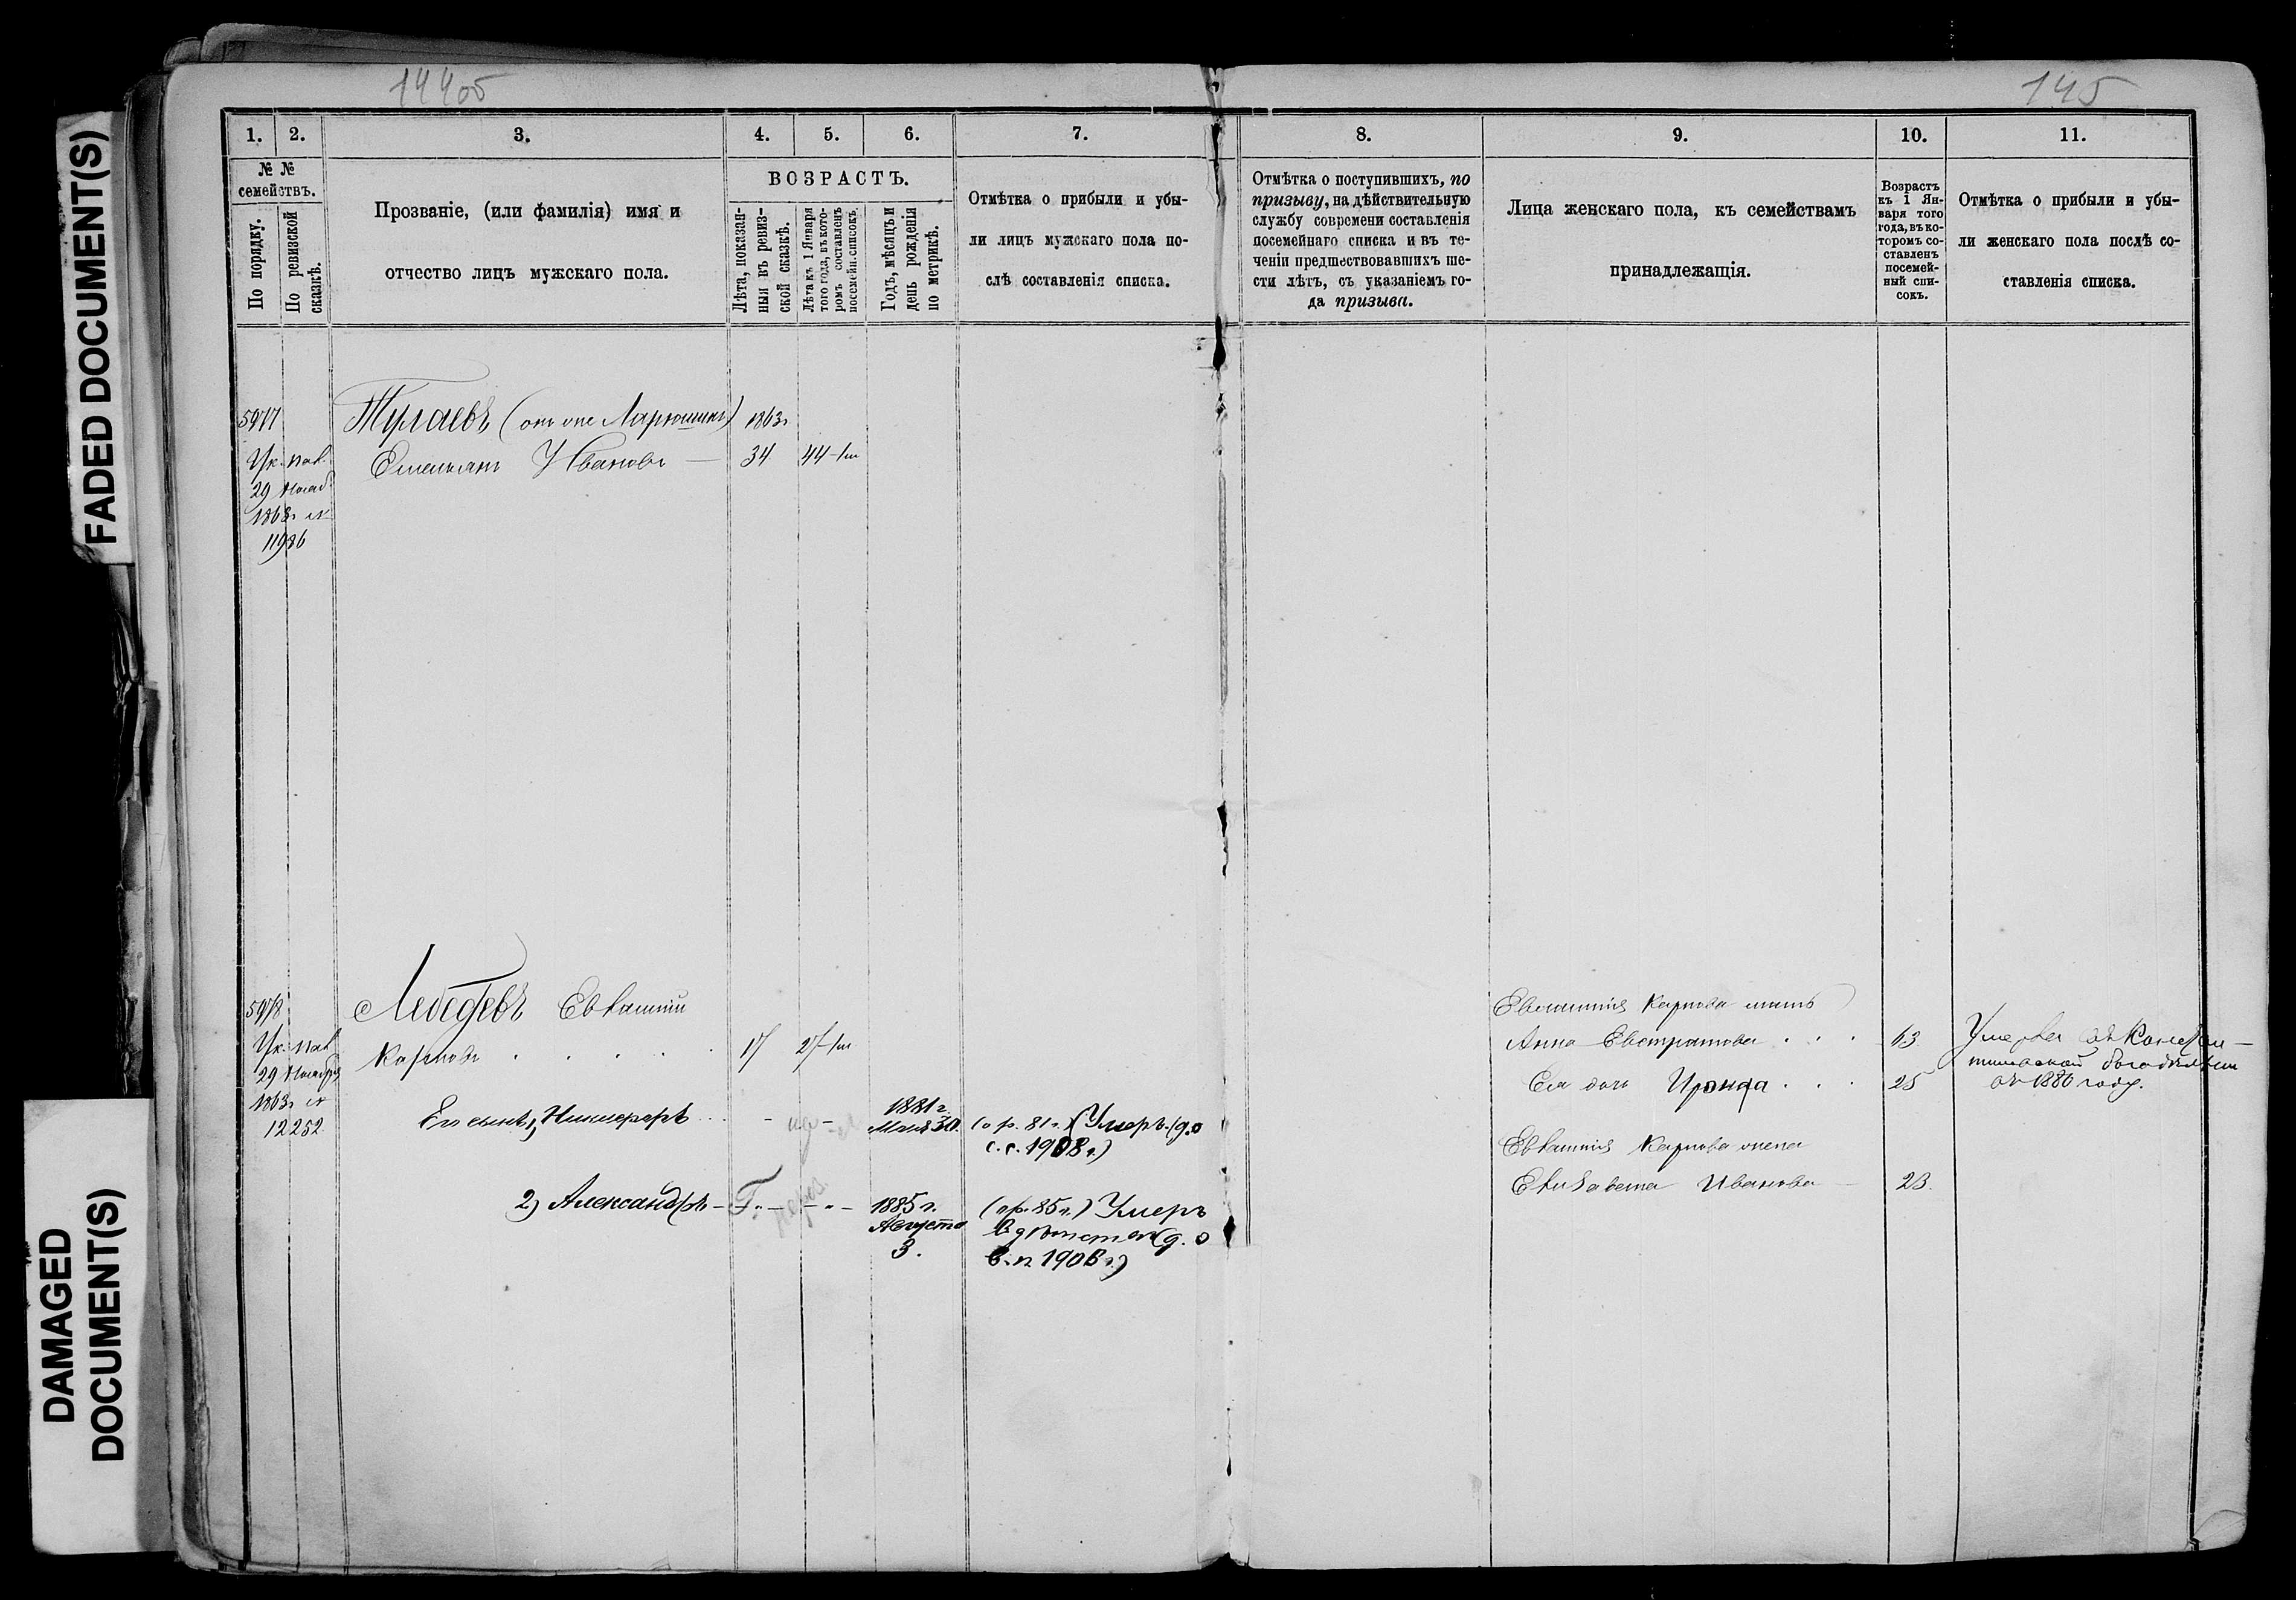 FADED DOCUMENT(S)
DAMAGED
DOCUMENT(S)
144об
145
1.
2.
3.
4.
5.
6.
7.
8.
9.
10.
11.
№ №
семействъ.
По порядку.
По ревизской
сказкѣ.
Прозваніе, (или фамилія) имя и
отчество лицъ мужскаго пола.
ВОЗРАСТЪ.
Лѣта, показан-
ныя въ ревиз-
ской сказкѣ.
Лѣта къ 1 Января
того года, въ кото-
ромъ составленъ
посемейн. списокъ.
Годъ, мѣсяцъ и
день рожденія
по метрикѣ.
Отмѣтка о прибыли и убы-
ли лицъ мужскаго пола по-
слѣ составленія списка.
Отмѣтка о поступившихъ, по
призыву, на дѣйствительную
службу современи составленія
посемейнаго списка и въ те-
ченіи предшествовавшихъ ше-
сти лѣтъ, съ указаніемъ го-
да призыва.
Лица женскаго пола, къ семействамъ
принадлежащія.
Возрастъ
къ 1 Ян-
варя того
года, въ ко-
торомъ со-
ставленъ
посемей-
ный спи-
сокъ.
Отмѣтка о прибыли и убы-
ли женскаго пола послѣ со-
ставленія списка.
5977
Ук. пал.
29 Нояб.
1863г №
11986
Тулаевъ (онъ же Ларюшинъ)
1863г
Емельянъ Ивановъ —
34
44
5978
Ук. пал.
29 Ноября
1863г №
12252
Лебедевъ Евлампій
Карповъ
17
27
Его сынъ 1) Никифоръ
1881г.
Мая 30.
(о р. 81г.) (Умеръ. (д. о
с. с. 1908г.)
2) Александръ
1885г.
Августа
3.
(о р. 85г.) Умеръ
въ дѣтствѣ (д. о
в. п. 1906г.)
Евлампія Карпова мать
Анна Евстратова
63
Ея дочь Ираида
25
Умерла въ
богадѣльни
въ 1880 году.
Евлампія Карпова жена
Елизавета Иванова
23.